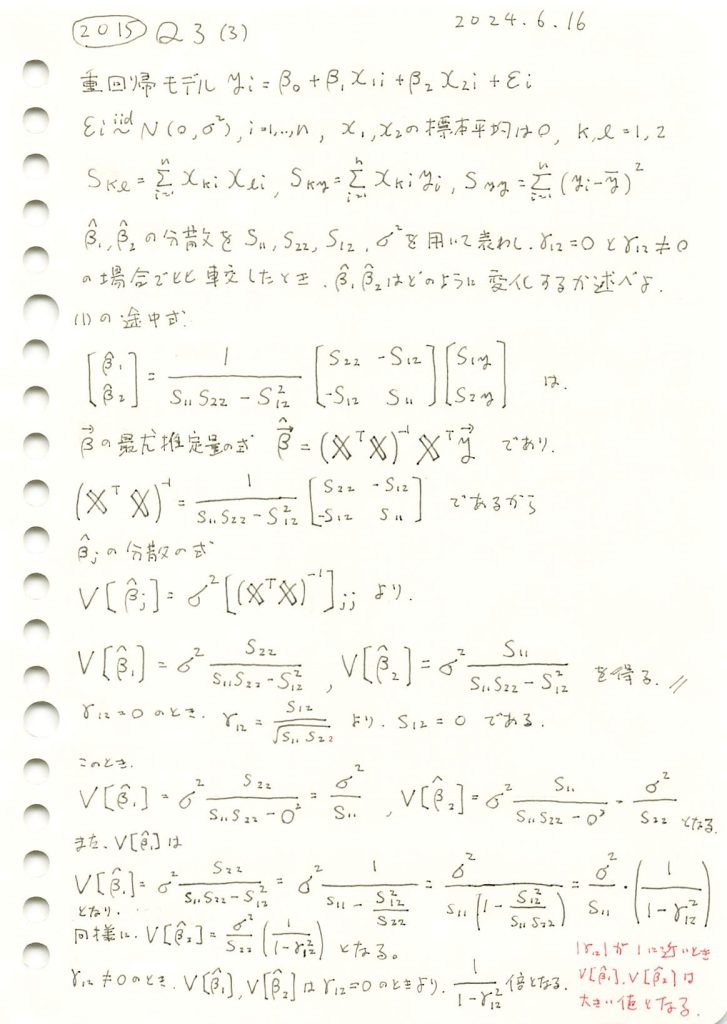 2015 Q3 (3) 2024.6.16
重回帰モデル yi = β₀ + β₁x₁i + β₂x₂i + εi
εi iid~ N(0, σ²), i=1,…,n, x₁, x₂の標本平均は0, k,l = 1,2
Skl = Σ[i=1,n] xki xli, Sky = Σ[i=1,n] xki yi, Syy = Σ[i=1,n] (yi - ȳ)²
β̂₁, β̂₂の分散をS₁₁, S₂₂, S₁₂, σ²を用いて表わし. r₁₂=0とr₁₂≠0
の場合で比較したとき. β̂₁β̂₂はどのように変化するか述べよ.
(1)の途中式.
[β̂₁ β̂₂] = 1/(S₁₁S₂₂ - S₁₂²) [S₂₂ -S₁₂ -S₁₂ S₁₁] [S₁y S₂y] は.
β⃗の最尤推定量の式 β⃗̂ = (XᵀX)⁻¹Xᵀy⃗ であり.
(XᵀX)⁻¹ = 1/(S₁₁S₂₂ - S₁₂²) [S₂₂ -S₁₂ -S₁₂ S₁₁] であるから
β̂jの分散の式
V[β̂j] = σ²[(XᵀX)⁻¹]jj より.
V[β̂₁] = σ² S₂₂/(S₁₁S₂₂ - S₁₂²), V[β̂₂] = σ² S₁₁/(S₁₁S₂₂ - S₁₂²) を得る. //
r₁₂=0のとき. r₁₂ = S₁₂/√(S₁₁S₂₂) より. S₁₂ = 0 である.
このとき.
V[β̂₁] = σ² S₂₂/(S₁₁S₂₂ - 0²) = σ²/S₁₁, V[β̂₂] = σ² S₁₁/(S₁₁S₂₂ - 0²) = σ²/S₂₂ となる.
また. V[β̂₁]は
V[β̂₁] = σ² S₂₂/(S₁₁S₂₂ - S₁₂²) = σ² 1/(S₁₁ - S₁₂²/S₂₂) = σ²/(S₁₁(1 - S₁₂²/(S₁₁S₂₂))) = σ²/S₁₁ · (1/(1 - r₁₂²))
となり.
同様に. V[β̂₂] = σ²/S₂₂ (1/(1 - r₁₂²)) となる。
r₁₂≠0のとき. V[β̂₁], V[β̂₂]はr₁₂=0のときより. 1/(1 - r₁₂²) 倍となる.
|r₁₂|が1に近いとき
V[β̂₁], V[β̂₂]は
大きい値となる.